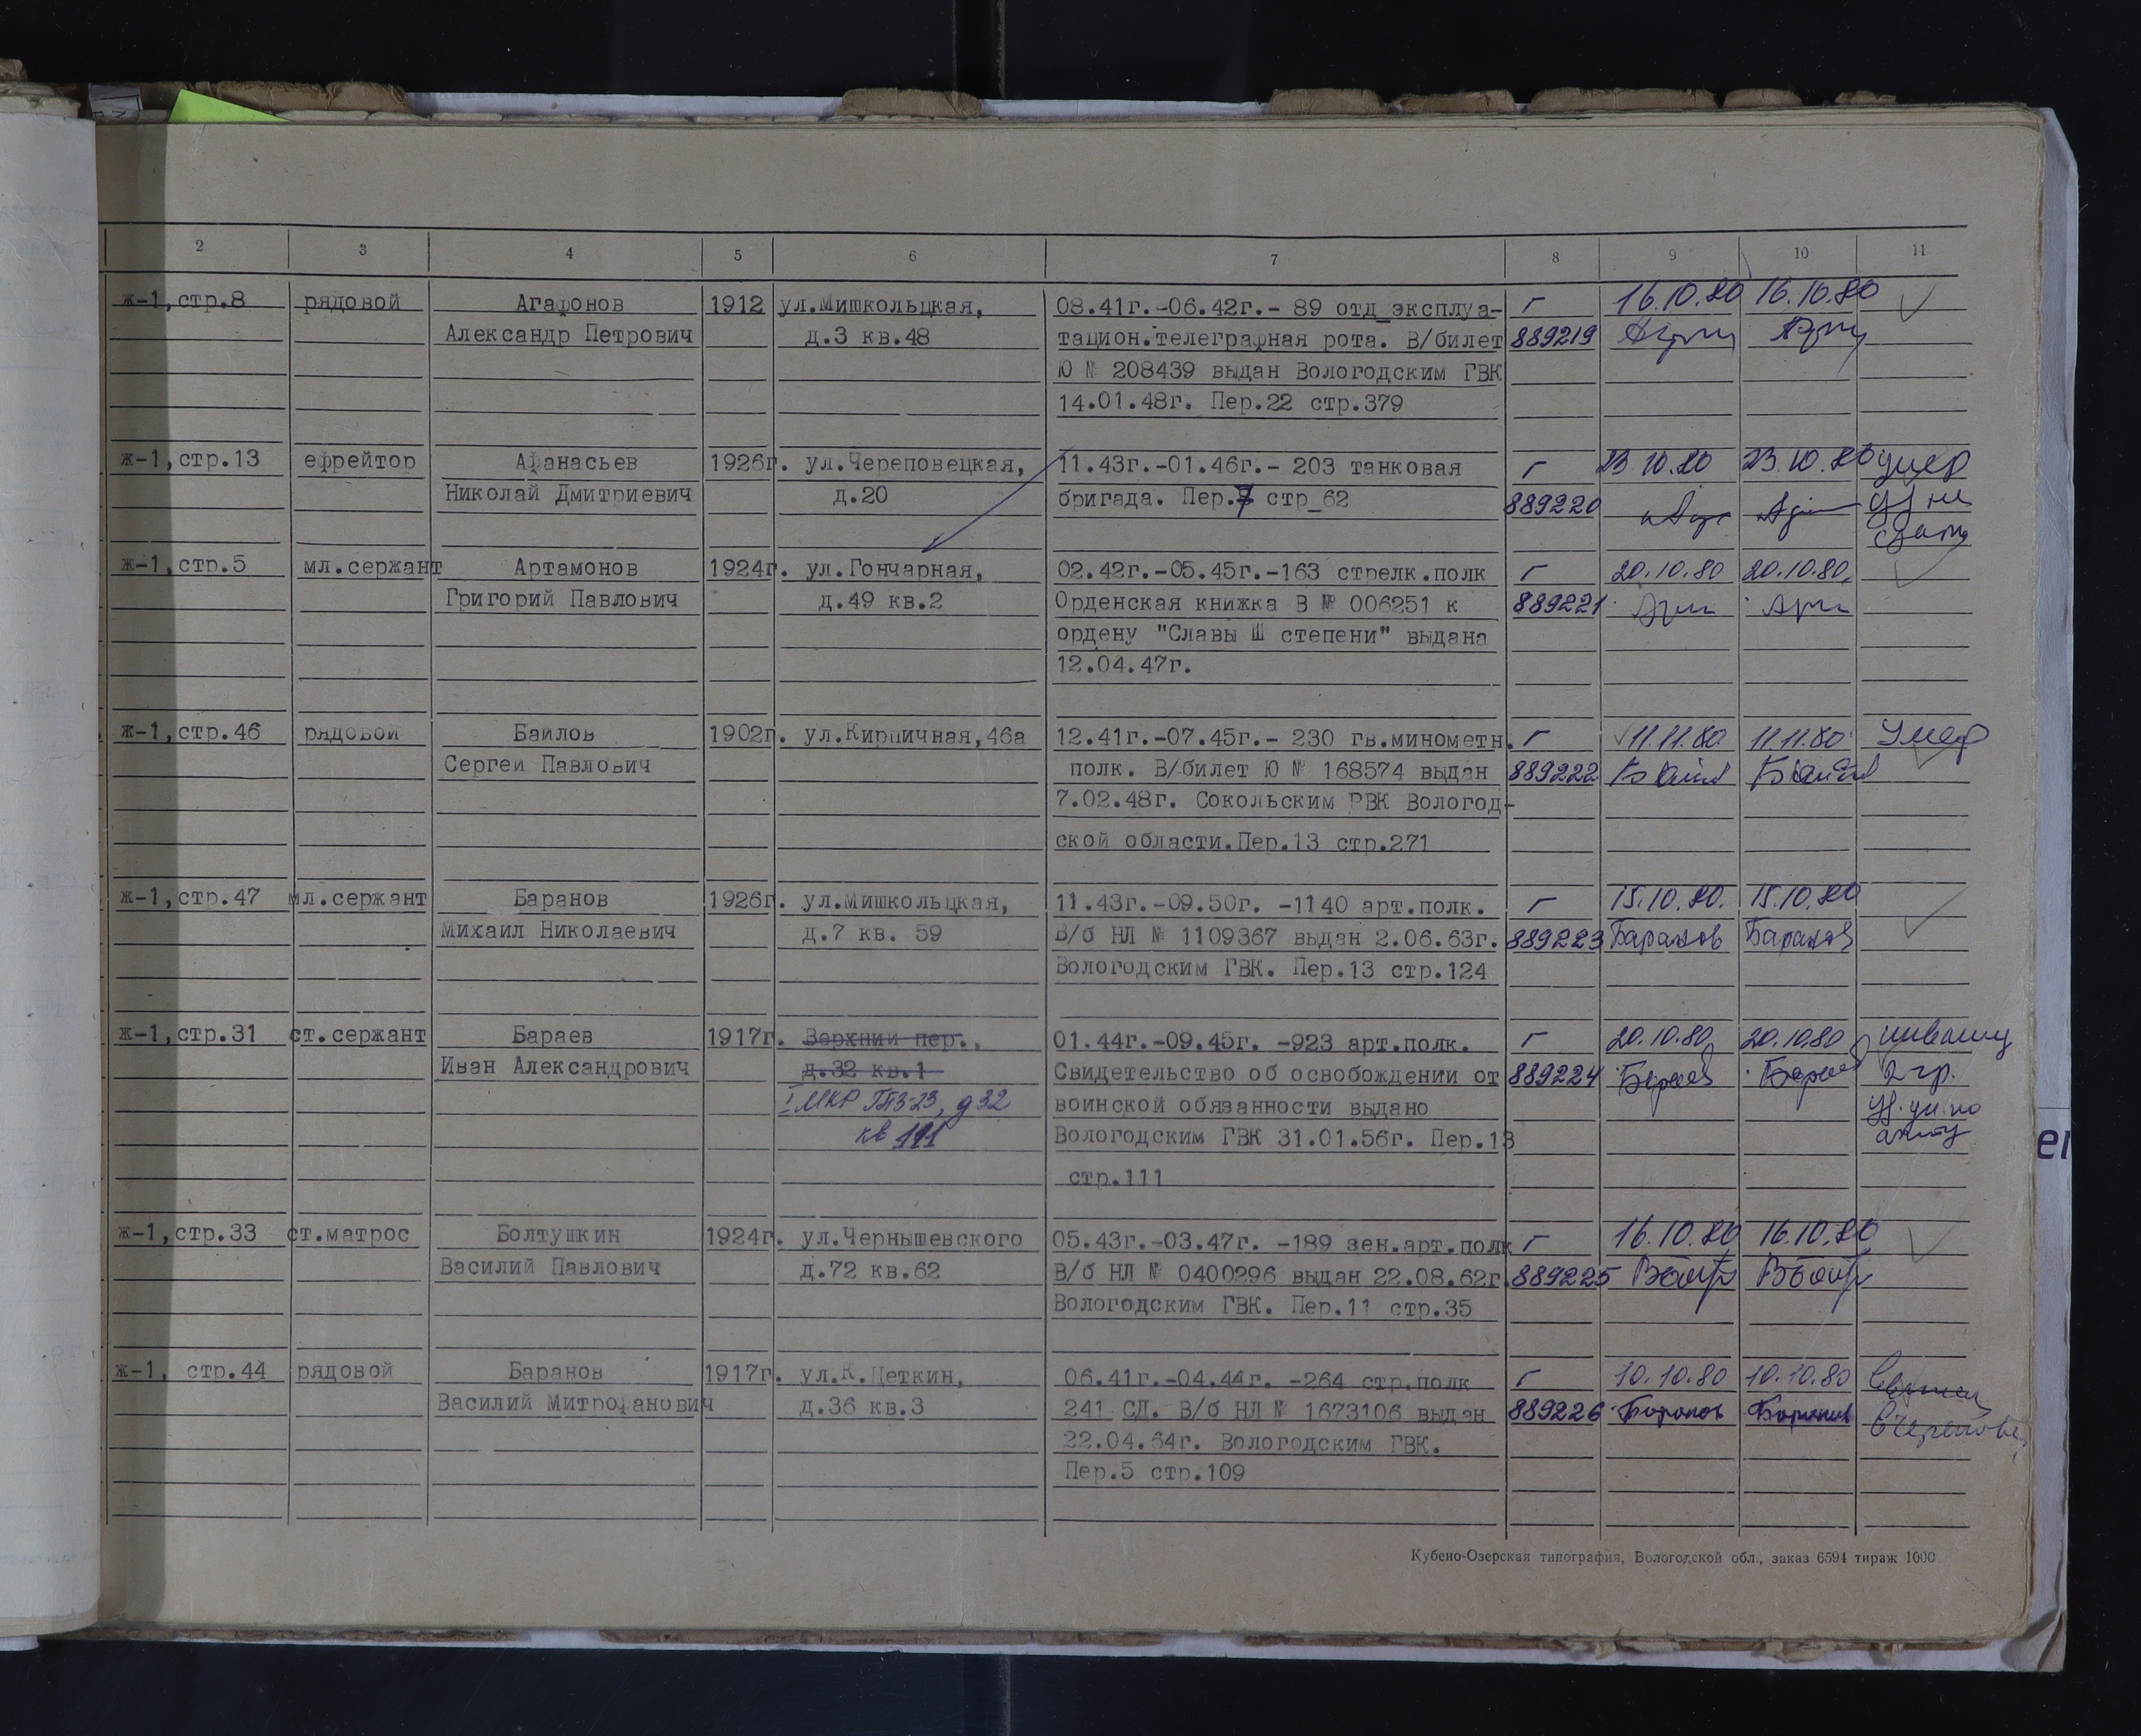 2 3 4 5 6 7 8 9 10 11
ж-1,стр.8 рядовой Агафонов 1912 ул.Мишкольцкая, 08.41г.-06.42г.- 89 отд эксплуа- Г 16.10.80 16.10.80
Александр Петрович д.3 кв.48 тацион.телеграфная рота. В/билет 889219
Ю № 208439 выдан Вологодским ГВК
14.01.48г. Пер.22 стр.379
ж-1,стр.13 ефрейтор Афанасьев 1926г. ул.Череповецкая, 11.43г.-01.46г.- 203 танковая Г 23.10.80 23.10.80 умер
Николай Дмитриевич д.20 бригада. Пер.7 стр_62 889220 уд не
сдать
ж-1,стр.5 мл.сержант Артамонов 1924г. ул.Гончарная, 02.42г.-05.45г.-163 стрелк.полк Г 20.10.80 20.10.80.
Григорий Павлович д.49 кв.2 Орденская книжка В № 006251 к 889221
ордену "Славы Ш степени" выдана
12.04.47г.
ж-1,стр.46 рядовой Баилов 1902г. ул.Кирпичная,46а 12.41г.-07.45г.- 230 гв.минометн. Г 11.11.80. 11.11.80 Умер
Сергей Павлович полк. В/билет Ю № 168574 выдан 889222
7.02.48г. Сокольским РВК Вологод-
ской области.Пер.13 стр.271
ж-1,стр.47 мл.сержант Баранов 1926г. ул.Мишкольцкая, 11.43г.-09.50г. -1140 арт.полк. Г 15.10.80. 15.10.80
Михаил Николаевич д.7 кв. 59 В/б НЛ № 1109367 выдан 2.06.63г. 889223 Баранов Баранов
Вологодским ГВК. Пер.13 стр.124
ж-1,стр.31 ст.сержант Бараев 1917г. Верхний пер., 01.44г.-09.45г. -923 арт.полк. Г 20.10.80 20.10.80 инвалид
Иван Александрович д.32 кв.1 Свидетельство об освобождении от 889224 Бараев Бараев 2 гр.
I МКР ГПЗ-23, д 32 воинской обязанности выдано
кв 111 Вологодским ГВК 31.01.56г. Пер.13
стр.111
ж-1,стр.33 ст.матрос Болтушкин 1924г. ул.Чернышевского 05.43г.-03.47г. -189 зен.арт.полк Г 16.10.80 16.10.80
Василий Павлович д.72 кв.62 В/б НЛ № 0400296 выдан 22.08.62г. 889225
Вологодским ГВК. Пер.11 стр.35
ж-1, стр.44 рядовой Баранов 1917г. ул.К.Цеткин, 06.41г.-04.44г. -264 стр.полк Г 10.10.80 10.10.80
Василий Митрофанович д.36 кв.3 241 СД. В/б НЛ № 1673106 выдан 889226 Баранов Баранов
22.04.64г. Вологодским ГВК.
Пер.5 стр.109
Кубено-Озерская типография, Вологодской обл., заказ 6594 тираж 1000